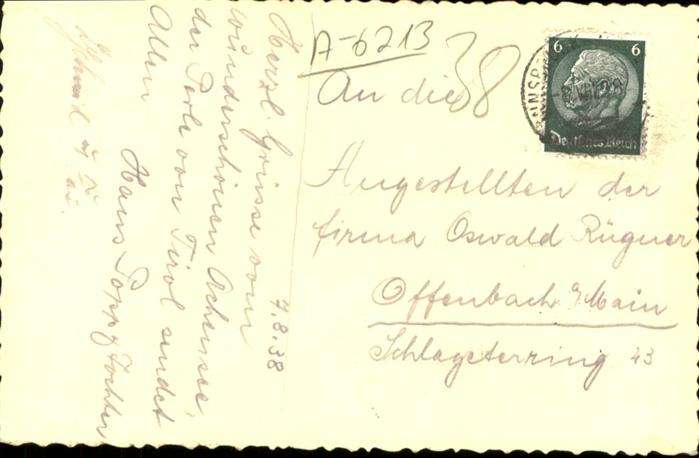 A-6213
38
6 6
Deutsches Reich
An die
Angestellten der
Firma Oswald Rügner
Offenbach a/Main
Schlageterring 43
7.8.38
Herzl. Grüsse vom
wunderschönen Achensee,
der Perle von Tirol sendet
Allen
Hans Popp & Tochter